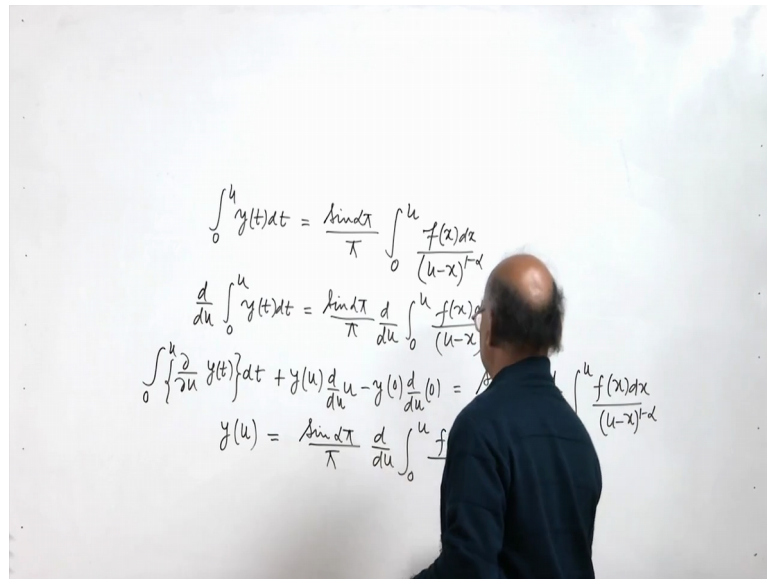 ∫₀ᵘ y(t)dt = sin απ / π ∫₀ᵘ f(x)dx / (u-x)^(1-α)
d/du ∫₀ᵘ y(t)dt = sin απ / π d/du ∫₀ᵘ f(x) / (u-x
∫₀ᵘ {∂/∂u y(t)}dt + y(u) d/du u - y(0) d/du (0) = ∫ᵘ f(x)dx / (u-x)^(1-α)
y(u) = sin απ / π d/du ∫₀ᵘ f